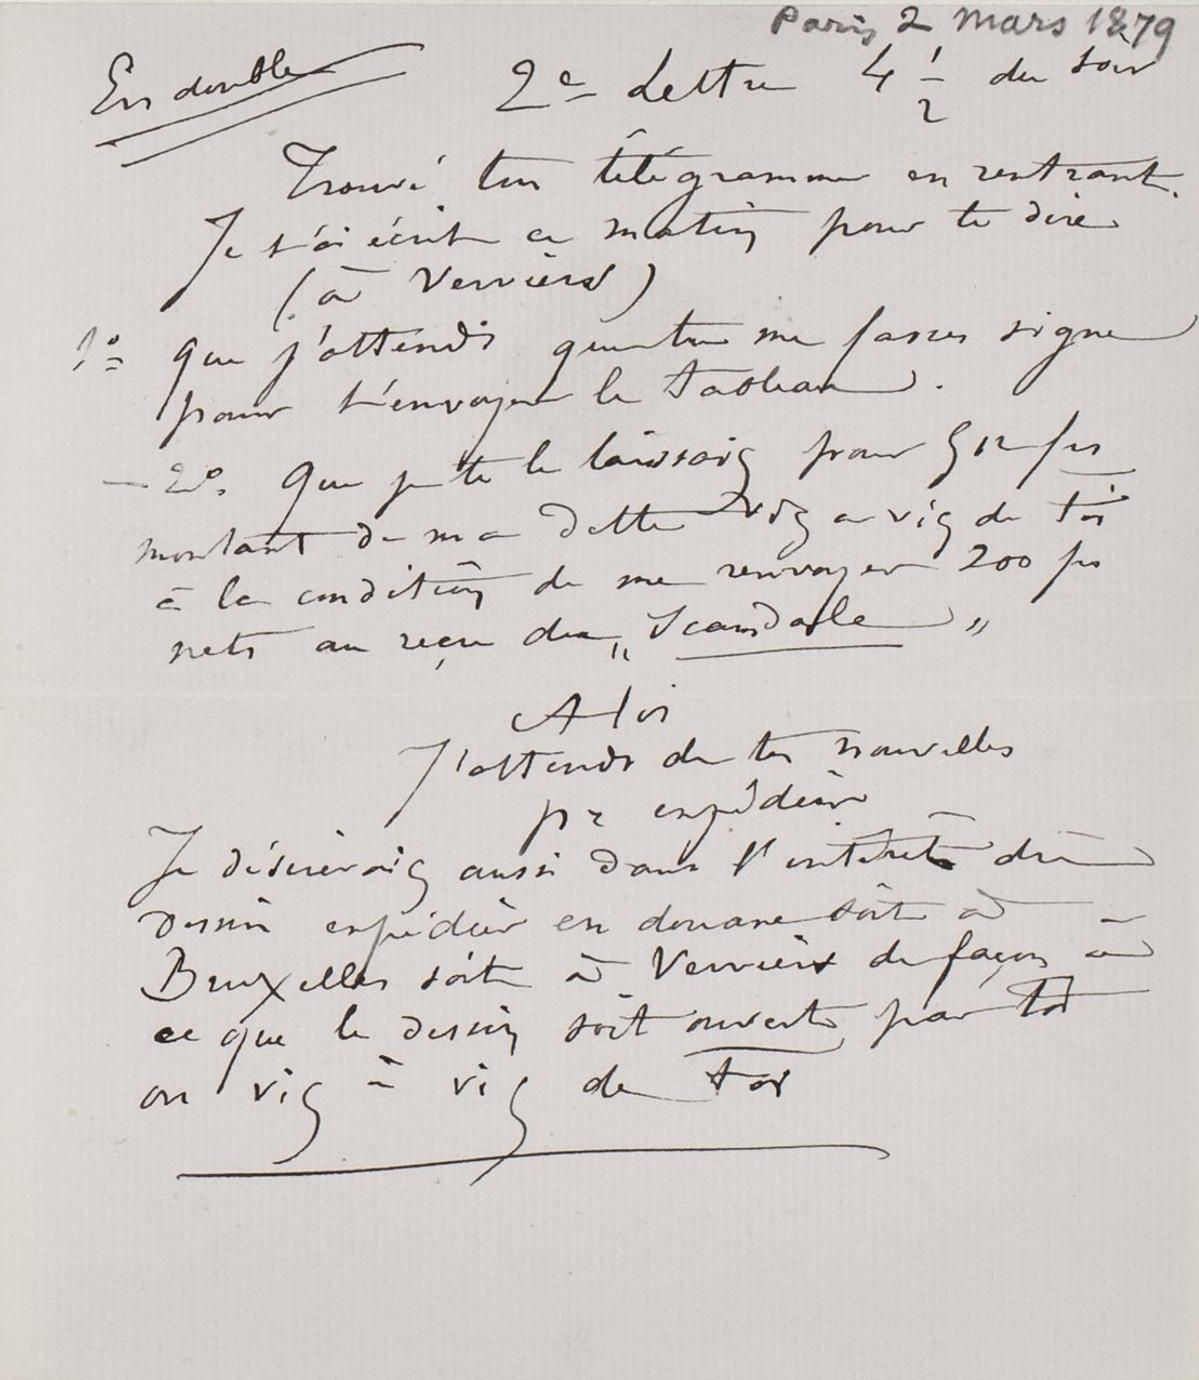 Paris 2 Mars 1879
En double
2e Lettre 4 1/2 du soir
Trouvé ton télégramme en rentrant.
Je t'ai écrit ce matin pour te dire
(à Verviers)
1o que j'attends que tu me fasses signe
pour t'envoyer le tableau.
— 2o. Que je te le laissais pour 512 frs
montant de ma dette vis a vis de toi
à la condition de me renvoyer 200 frs
nets au reçu du „ Scandale „
A toi
J'attends de tes nouvelles
pr expédier
Je désirerais aussi dans l'intérêt du
dessin expédier en douane soit à
Bruxelles soit à Verviers de façon à
ce que le dessin soit ouvert par toi
ou vis à vis de toi